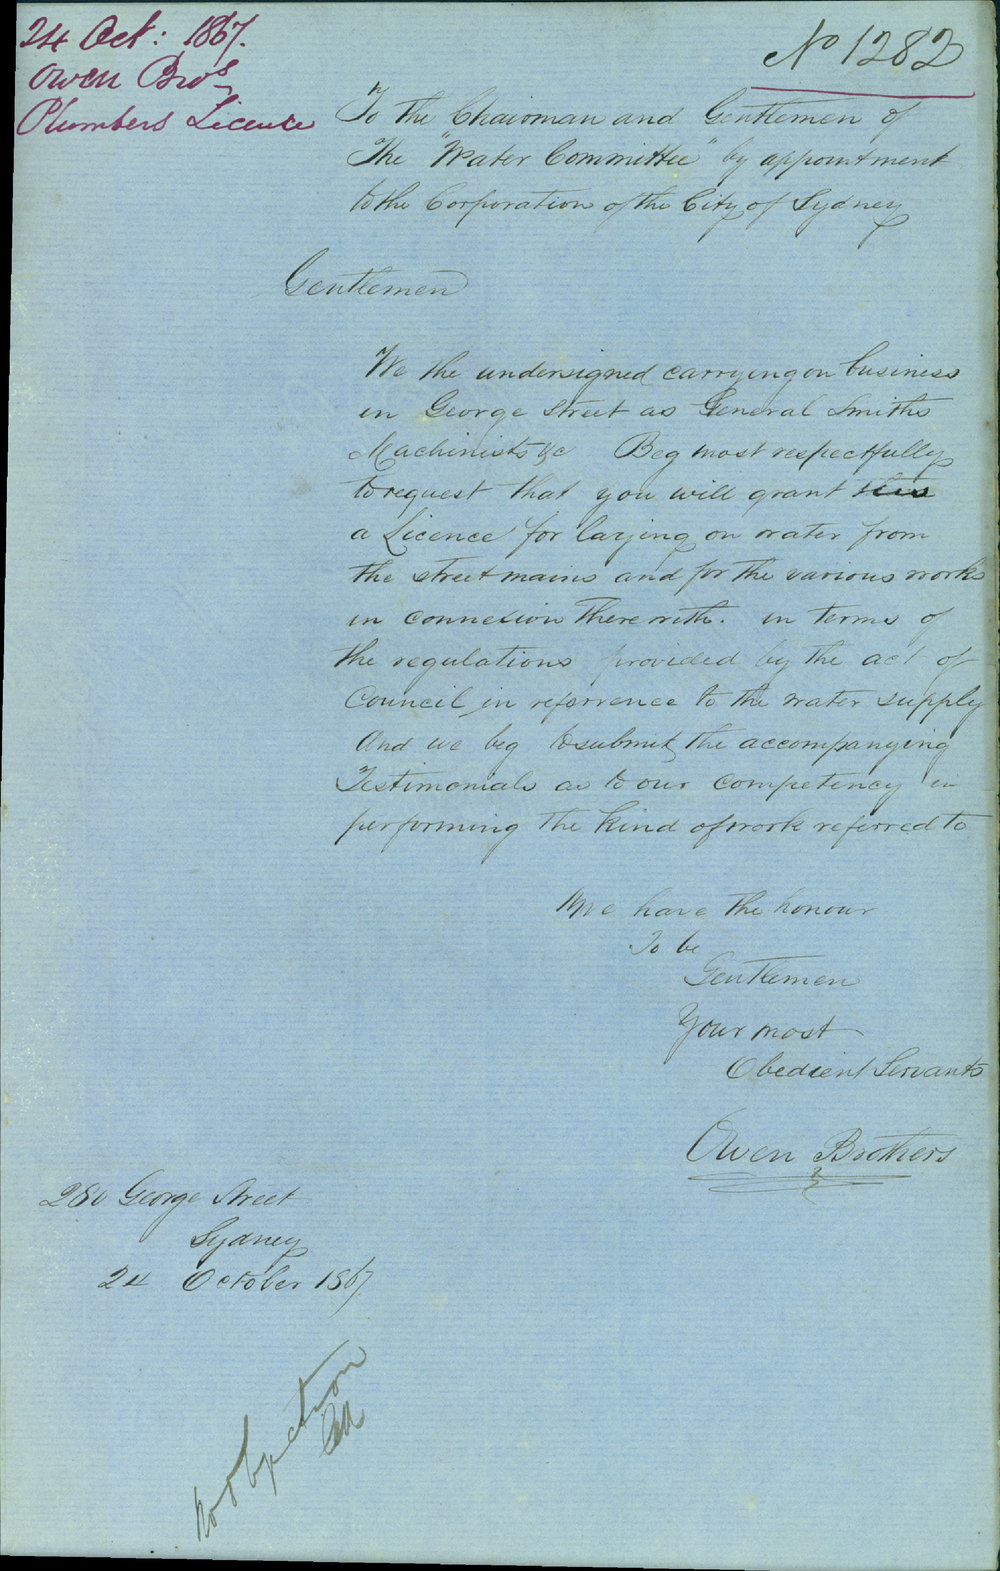 24 Oct: 1867.
Owen Bros
Plumbers Licence
No 1282
To the Chairman and Gentlemen of
The "Water Committee" by appointment
to the Corporation of the City of Sydney
Gentlemen
We the undersigned carrying on business
in George Street as General Smiths
Machinists &c Beg most respectfully
to request that you will grant
a Licence for laying on water from
the street mains and for the various works
in connexion therewith. in terms of
the regulations provided by the act of
Council in referrence to the water supply
And we beg to submit the accompanying
Testimonials as to our competency in
performing the kind of work referred to
We have the honour
To be
Gentlemen
Your most
Obedient Servants
Owen Brothers
280 George Street
Sydney
24 October 1867
No objection